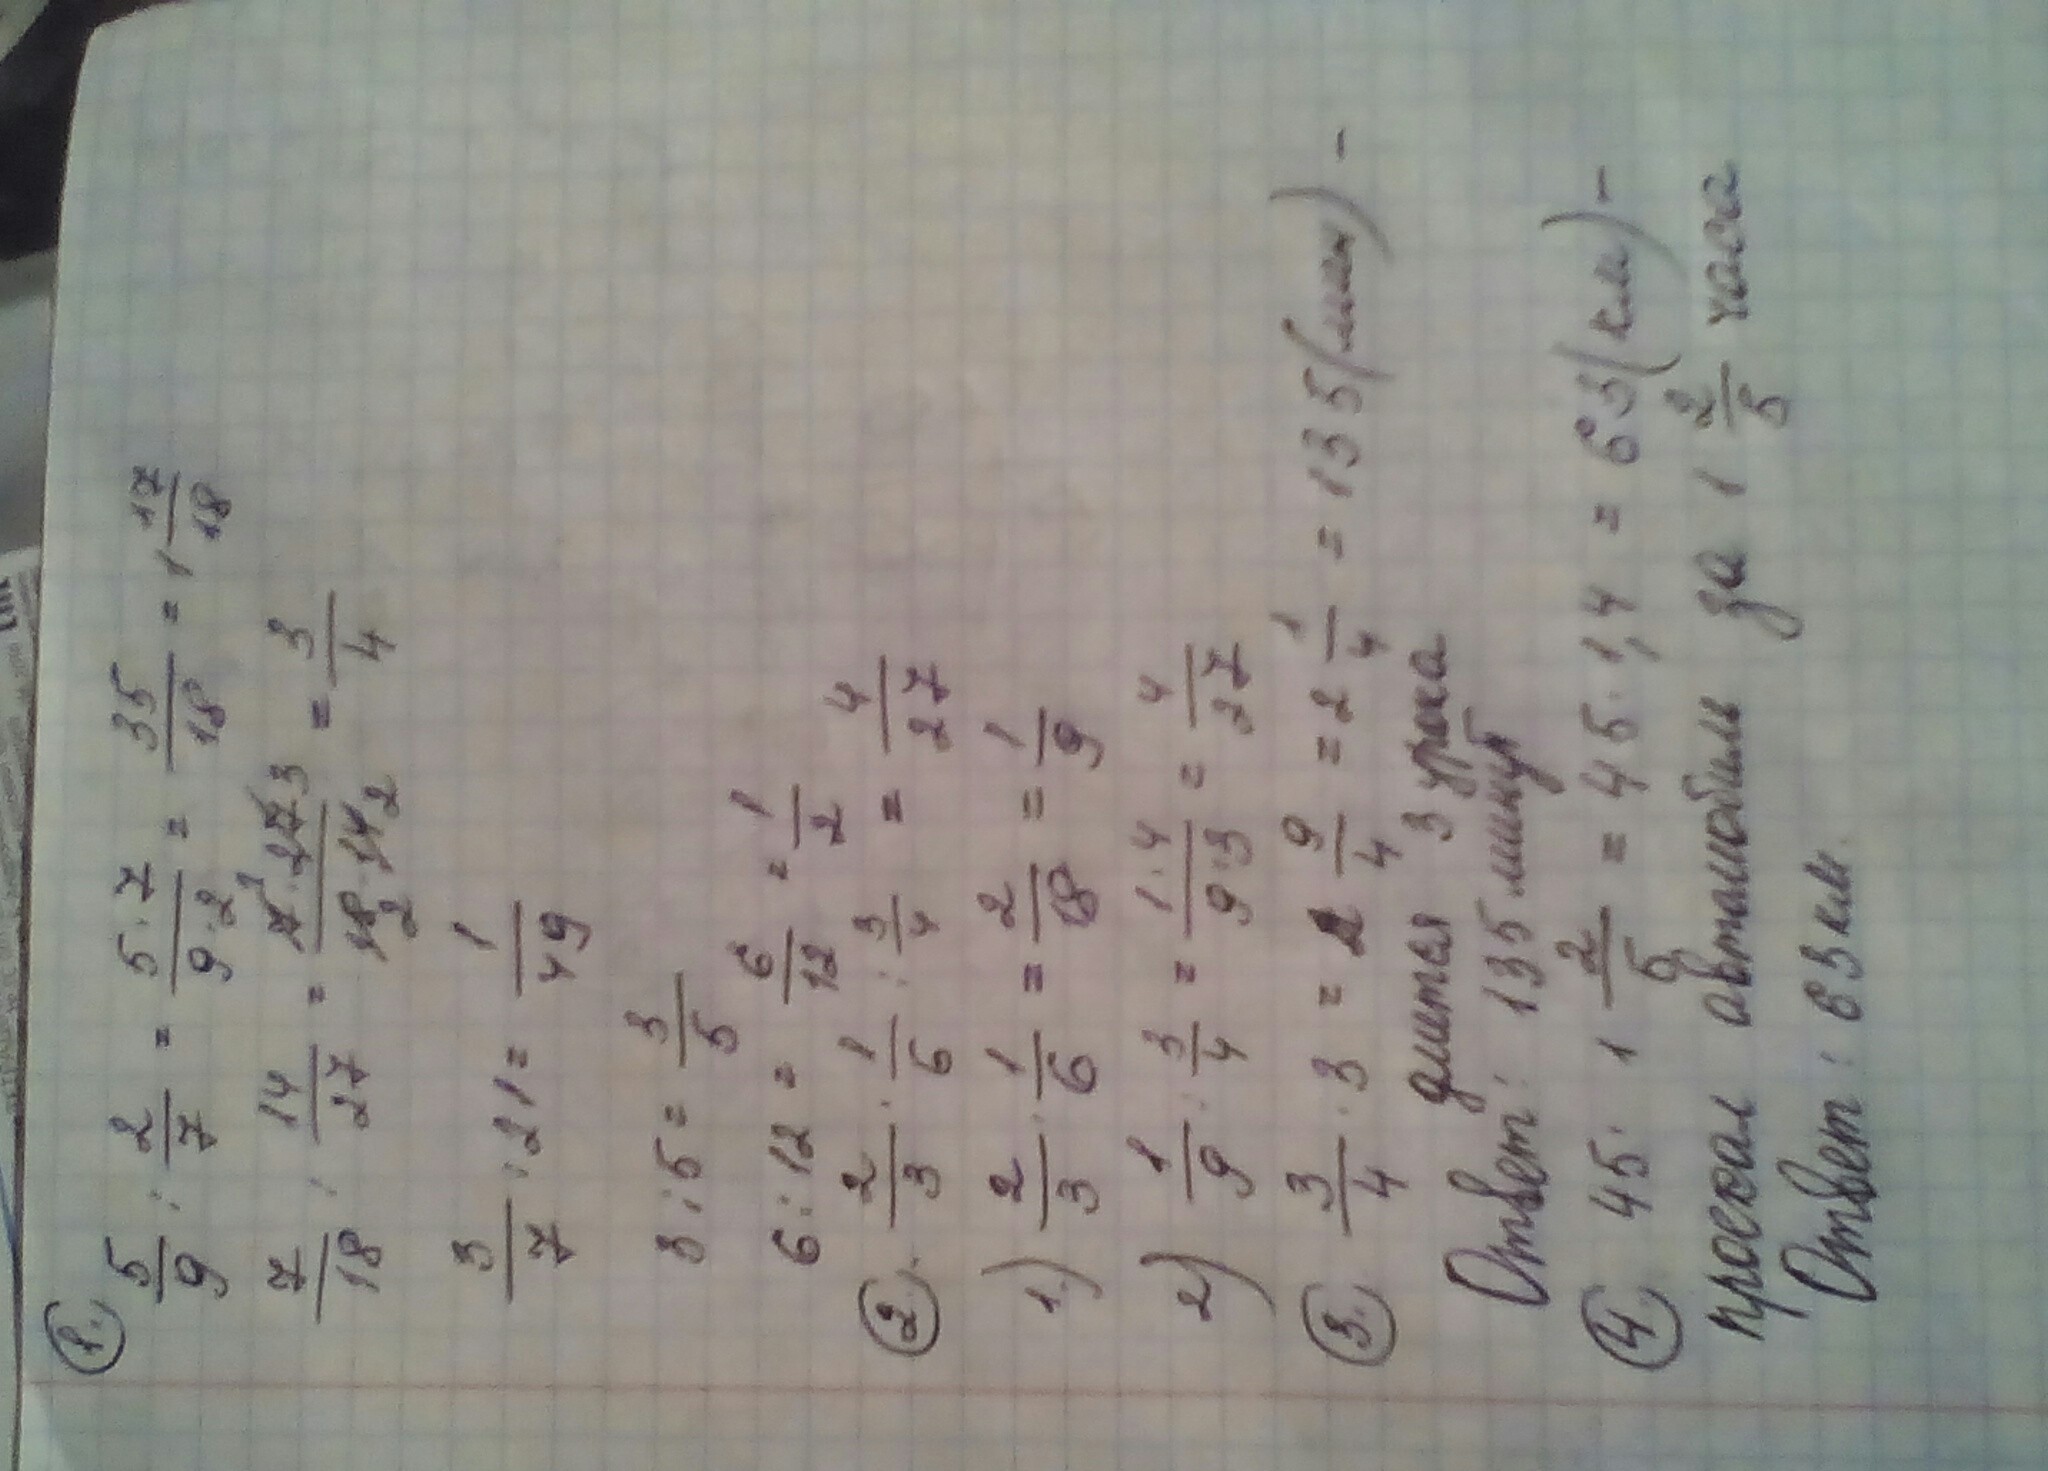 1.
5/9 : 2/7 = 5·7/9·2 = 35/18 = 1 17/18
7/18 : 14/27 = 7 1·27 3/18 2·14 2 = 3/4
3/7 : 21 = 1/49
3 : 5 = 3/5
6 : 12 = 6/12 = 1/2
2. 2/3 · 1/6 : 3/4 = 4/27
1) 2/3 · 1/6 = 2/18 = 1/9
2) 1/9 : 3/4 = 1·4/9·3 = 4/27
3. 3/4 · 3 = 9/4 = 2 1/4 = 135 (мин) –
длится 3 урока
Ответ: 135 минут
4. 45 · 1 2/5 = 45 · 1,4 = 63 (км) –
проехал автомобиль за 1 2/5 часа
Ответ: 63 км.